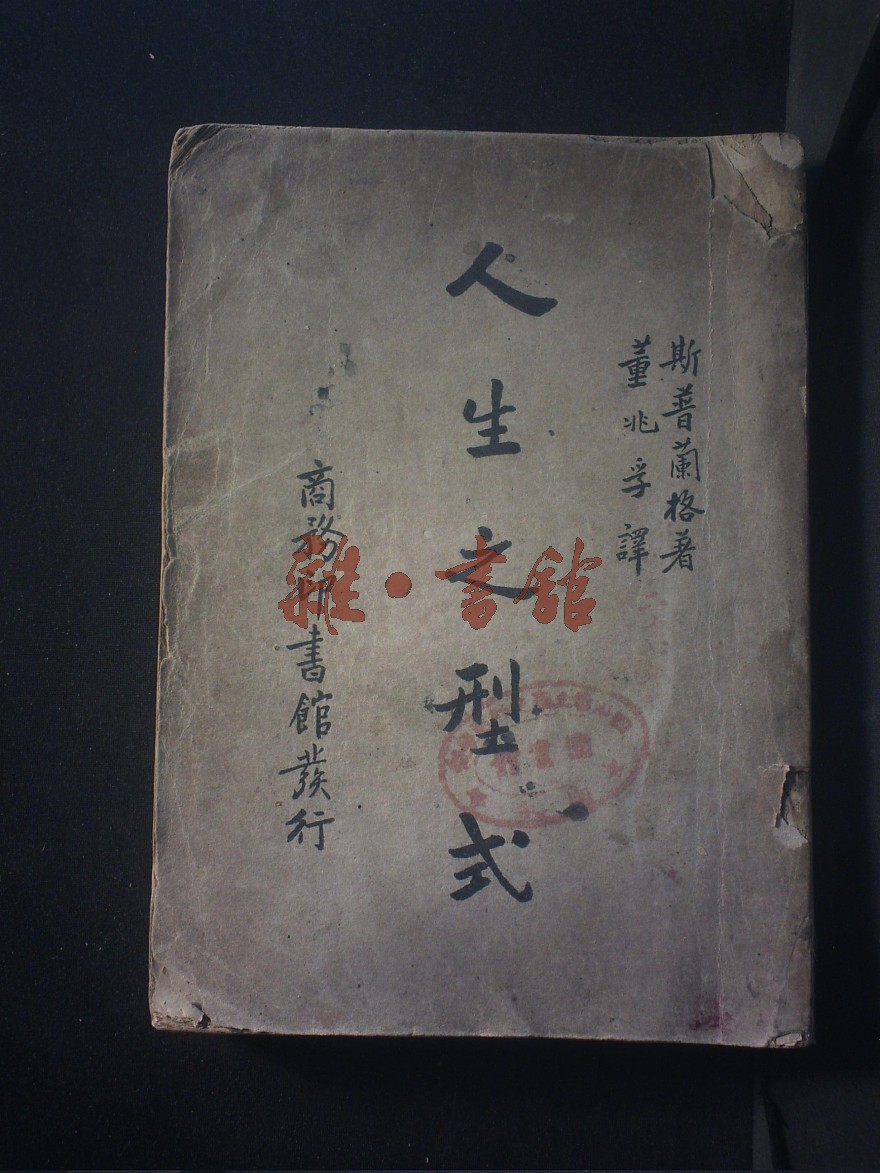 斯普蘭格著
董兆孚譯
人生之型式
商務印書館發行
雜·書館